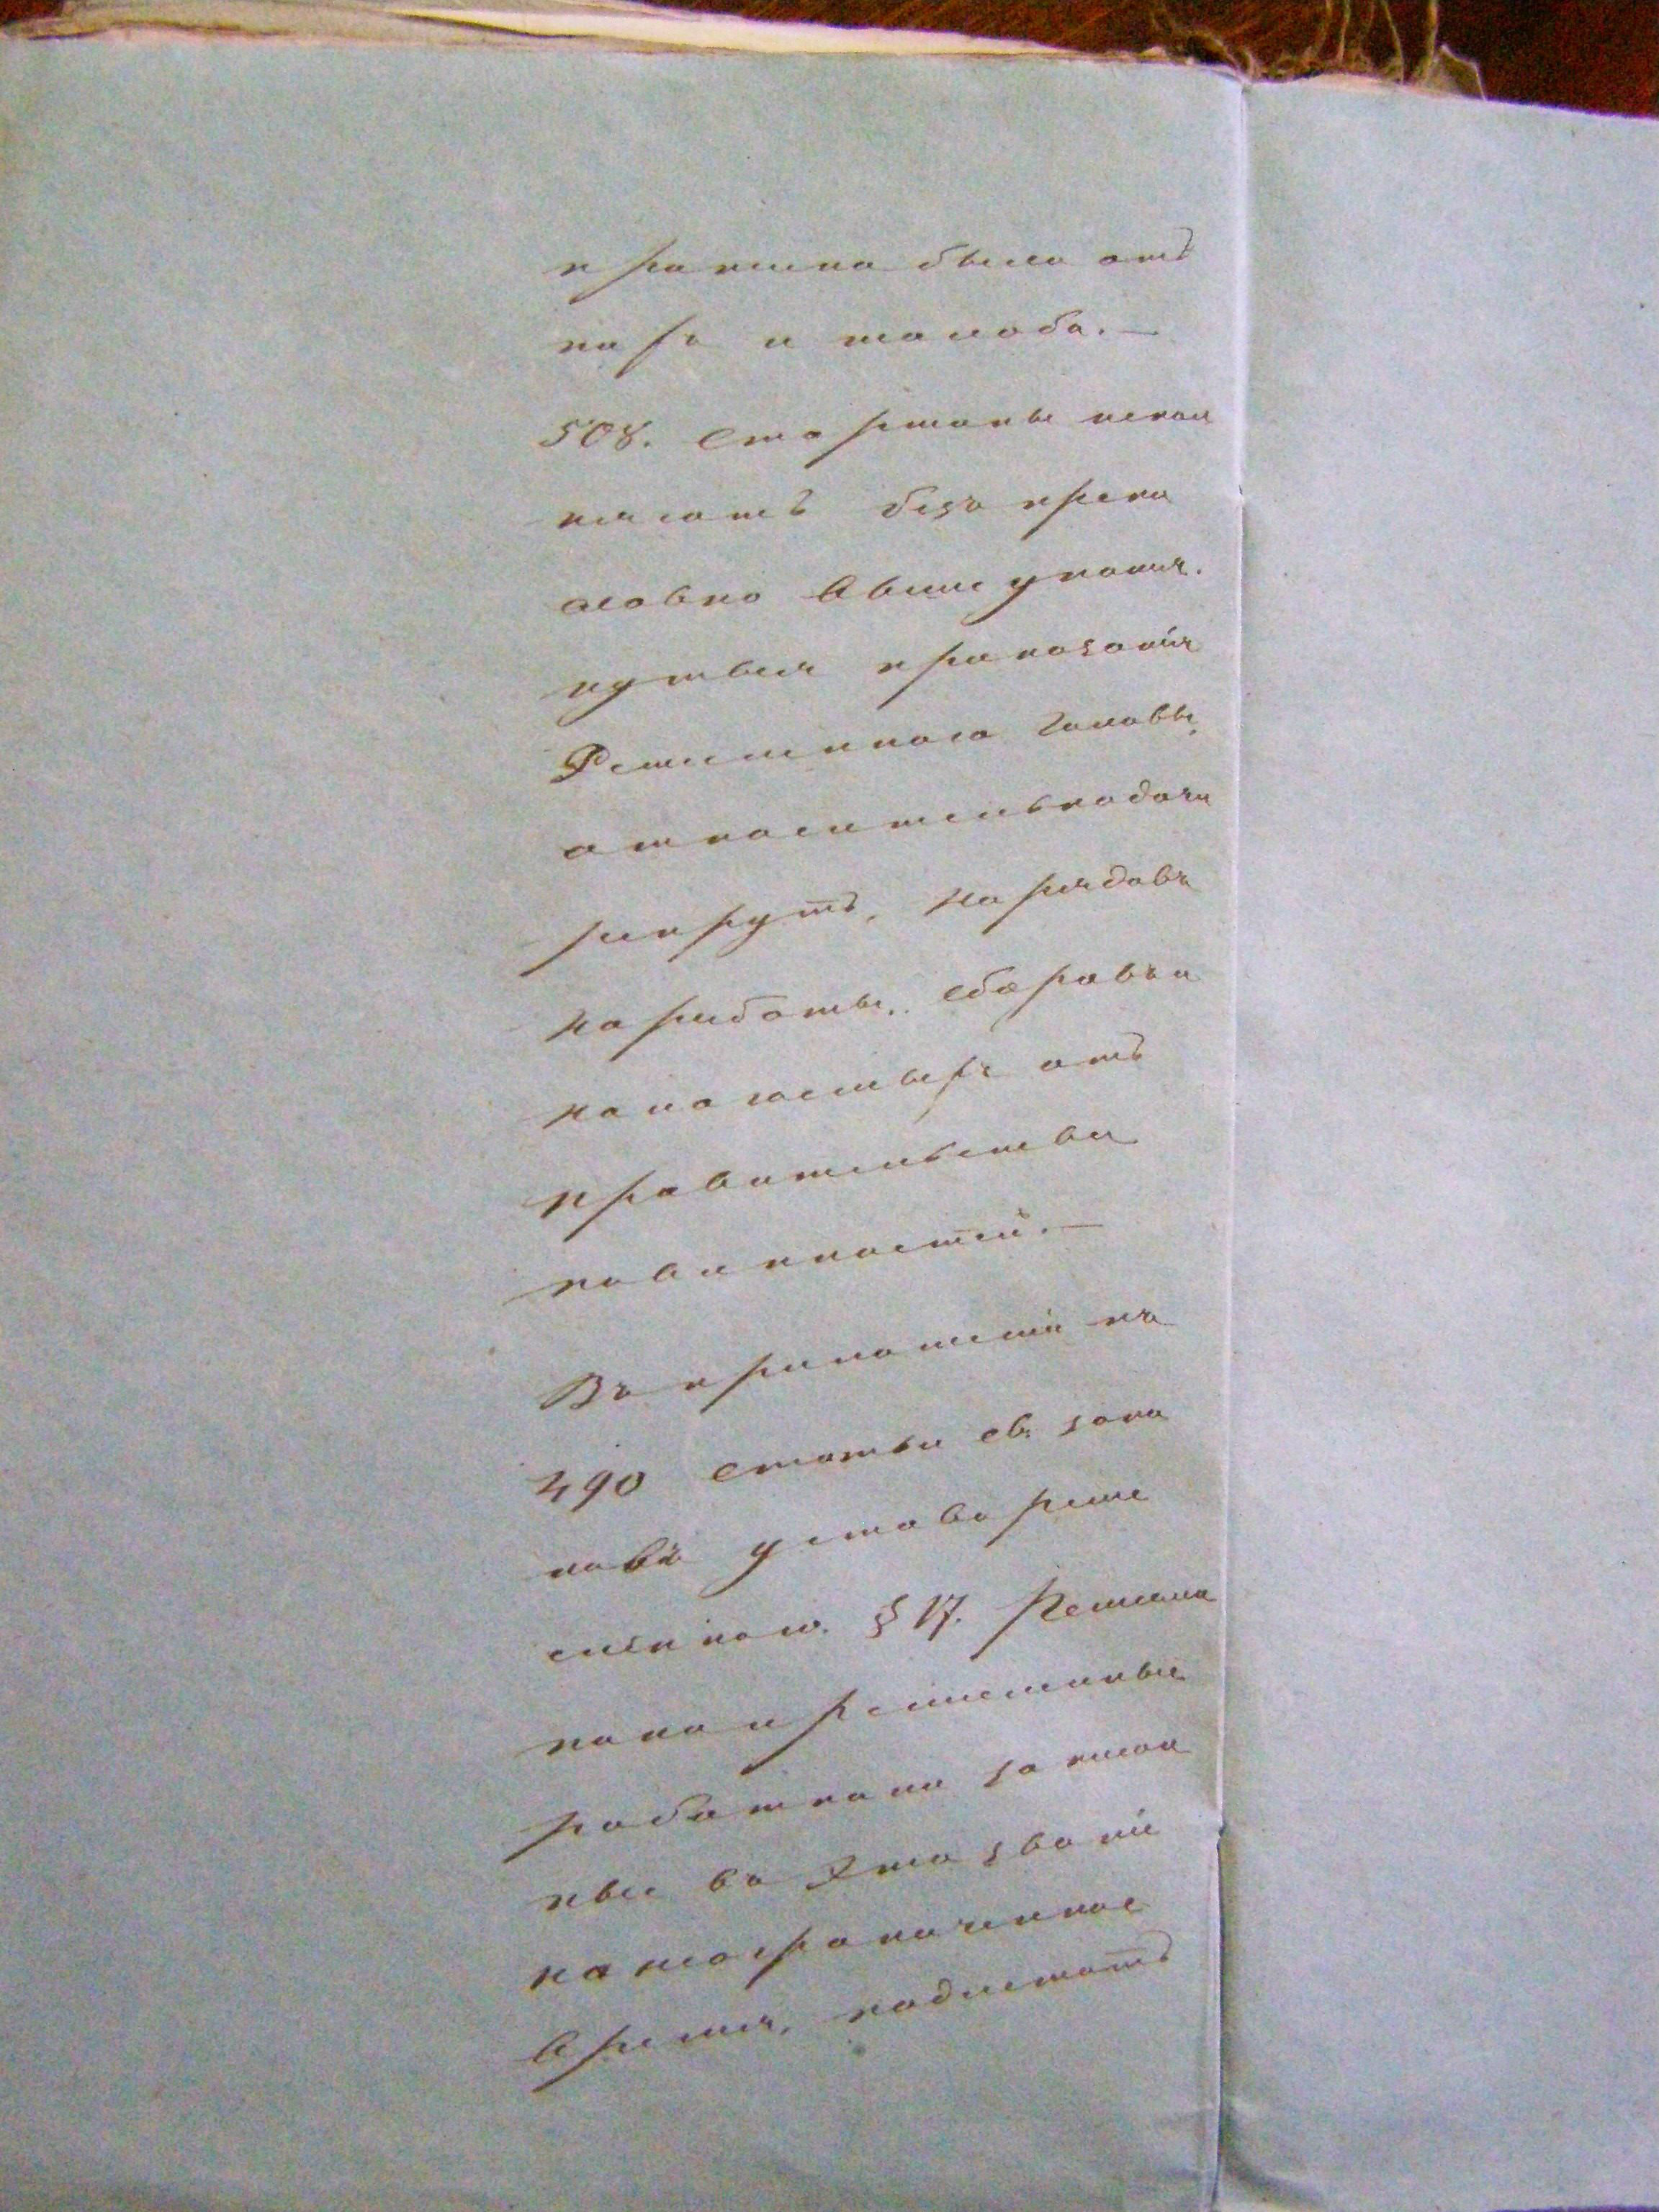 кратина была отъ
нихъ и жалоба. —
508. Старшины испол
няютъ безъ преко
словно Вышеупомя.
нутыя приказанія
Ремесленнаго Головы,
относительно дачи
рекрутъ, нарядовъ
на работы, сборовъ и
налогаемыхъ отъ
правительства
повинностей. —
Въ приложеніи къ
490 статьи св: зако
новъ устава реме
сленнаго. § 17. Ремеслен
ники и Ремесленные
работники записан
ные въ Это званіе
на неограниченное
время, подлежатъ